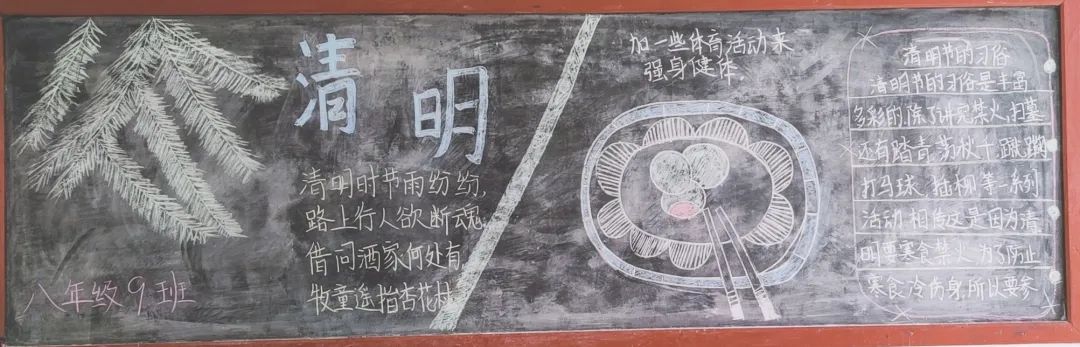 清明
清明时节雨纷纷,
路上行人欲断魂
借问酒家何处有
牧童遥指杏花村
八年级9班
加一些体育活动来
强身健体.
清明节的习俗
清明节的习俗是丰富
多彩的,除了讲究禁火、扫墓
还有踏青、荡秋千、蹴鞠
打马球、插柳等一系列
活动相传这是因为清
明要寒食禁火,为了防止
寒食冷伤身,所以要参